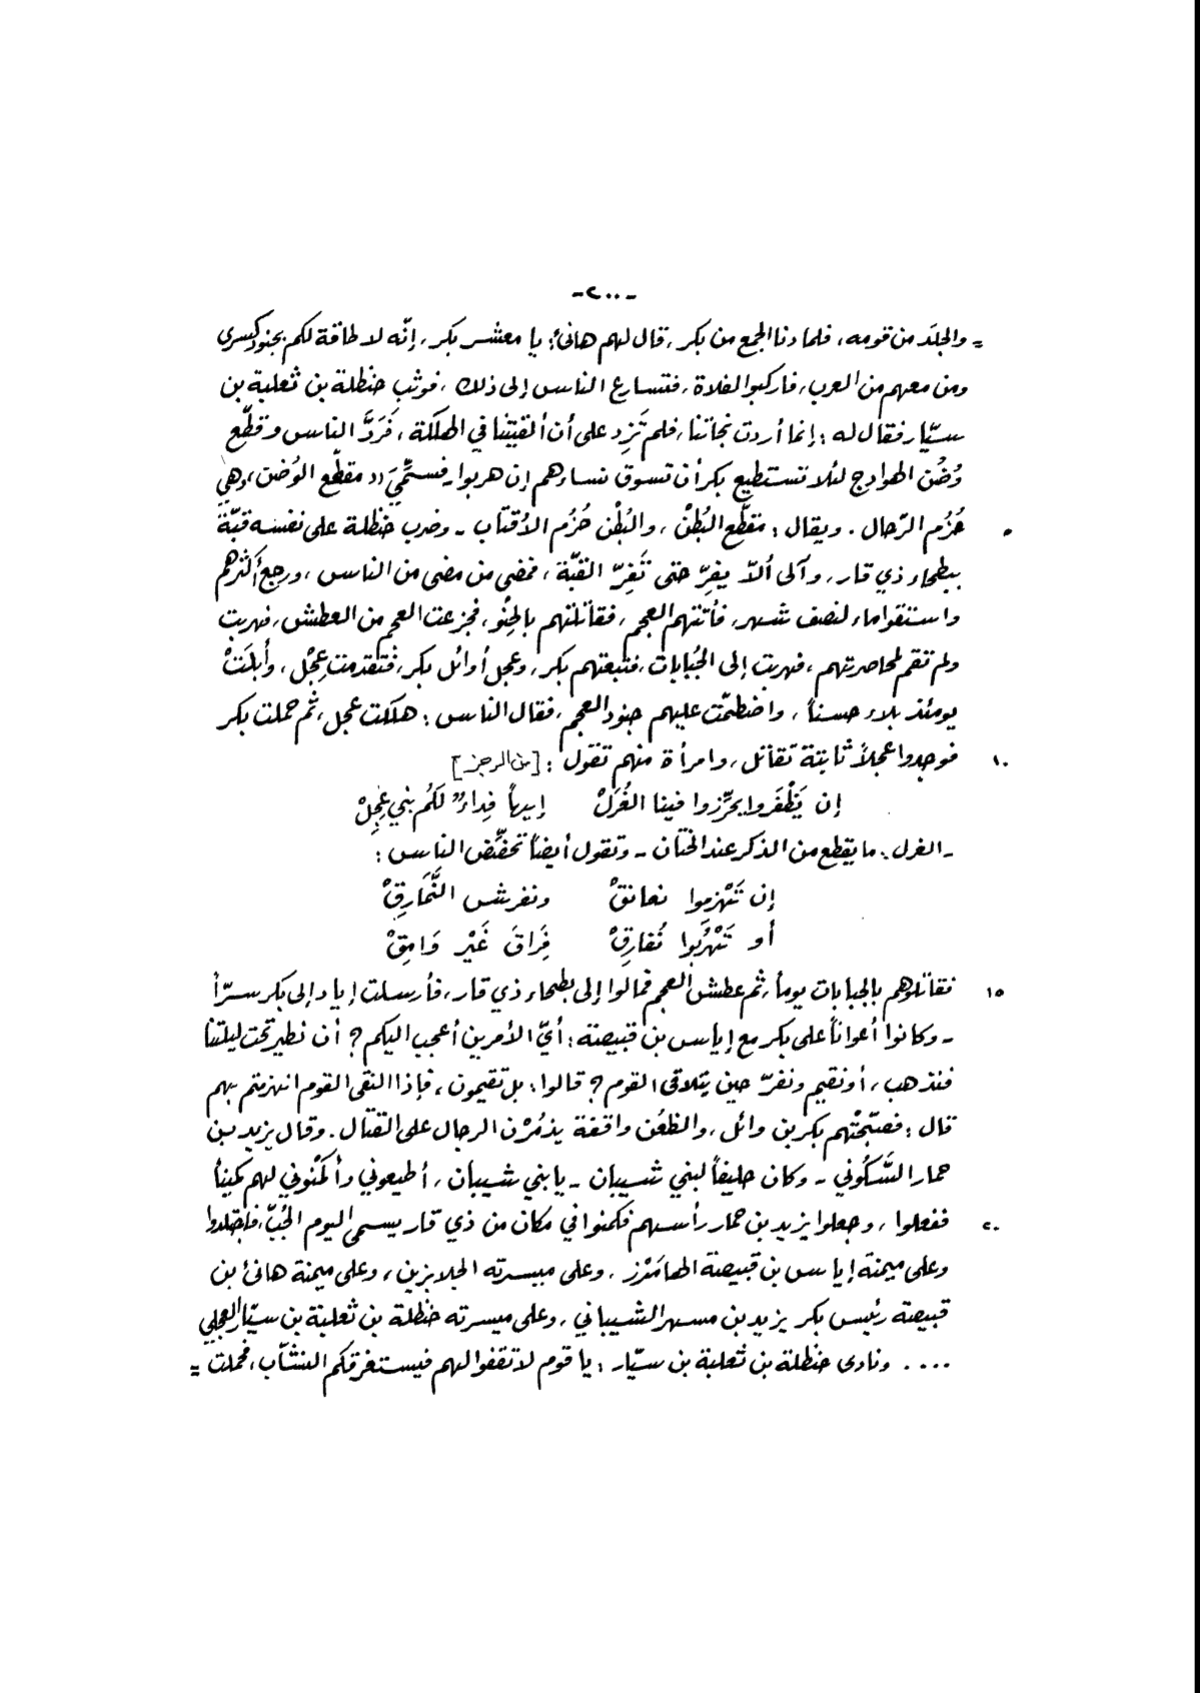 -٢٠٠-
= والجلَد من قومه، فلما دنا الجمع من بكر، قال لهم هانئ: يا معشر بكر، إنّه لا طاقة لكم بجنود كسرى
ومن معهم من العرب، فاركبوا الفلاة، فتسارع الناس إلى ذلك، فوثب حنظلة بن ثعلبة بن
سيّار فقال له: إنما أردت نجاتنا، فلم تَزِد على أن ألقيتنا في الهلكة، فَرَدَّ الناس وقطّع
وُضُن الهوادج لئلا تستطيع بكر أن تسوق نساءهم إن هربوا - فسمِّيَ «مقطّع الوُضن» وهي
٥ حُزُم الرّحال. ويقال: مقطّع البُطُن، والبُطُن حُزُم الأقتاب - وضرب حنظلة على نفسه قبّة
ببطحاء ذي قار، وآلى ألاّ يفرّ حتى تَفِرّ القبّة، فمضى من مضى من الناس، ورجع أكثرهم
واستقوا ماء لنصف شهر، فأتتهم العجم، فقاتلتهم بالحِنْو، فجزعت العجم من العطش، فهربت
ولم تقم لمحاصرتهم، فهربت إلى الجُبابات، فتبعتهم بكر، وعجل أوائل بكر، فتقدمت عِجْل، وأبلَتْ
يومئذ بلاء حسناً، واضطمّت عليهم جنود العجم، فقال الناس: هلكت عجل، ثم حملت بكر
١٠ فوجدوا عجلاً ثابتة تقاتل، وامرأة منهم تقول: [من الرجز]
إن يَظْفَروا يحرِّزوا فينا الغُرَلْ إيهاً فِداءٌ لكُم بني عِجِلْ
- الغرل: ما يقطع من الذكر عند الختان - وتقول أيضاً تحضِّض الناس:
إن تَهْزِموا نعانقْ ونفرش النَّمَارِقْ
أو تَهْرُبوا نُفارِقْ فِرَاقَ غَيْر وَامِقْ
١٥ فقاتلوهم بالجبابات يوماً، ثم عطش العجم فمالوا إلى بطحاء ذي قار، فأرسلت إياد إلى بكر سرّاً
- وكانوا أعواناً على بكر مع إياس بن قبيصة: أيّ الأمرين أعجب اليكم؟ أن نطير تحت ليلتنا
فنذهب، أو نقيم ونفرّ حين يتلاقى القوم؟ قالوا: بل تقيمون، فإذا التقى القوم انهزمتم بهم
قال: فصبّحتهم بكر بن وائل، والظعُن واقفة يذمُرْن الرجال على القتال. وقال يزيد بن
حمار السَّكُوني - وكان حليفاً لبني شيبان - يا بني شيبان، أطيعوني وأكمنوني لهم كميناً
٢٠ ففعلوا، وجعلوا يزيد بن حمار رأسهم فكمنوا في مكان من ذي قار يسمى اليوم الجُبّ، فاجتلدوا
وعلى ميمنة إياس بن قبيصة الهامَرْز، وعلى ميسرته الجلابزين، وعلى ميمنة هانئ بن
قبيصة رئيس بكر يزيد بن مسهر الشيباني، وعلى ميسرته حنظلة بن ثعلبة بن سيّار العجلي
.... ونادى حنظلة بن ثعلبة بن سيّار: يا قوم لا تقفوا لهم فيستغرقكم النشّاب، فحملت =